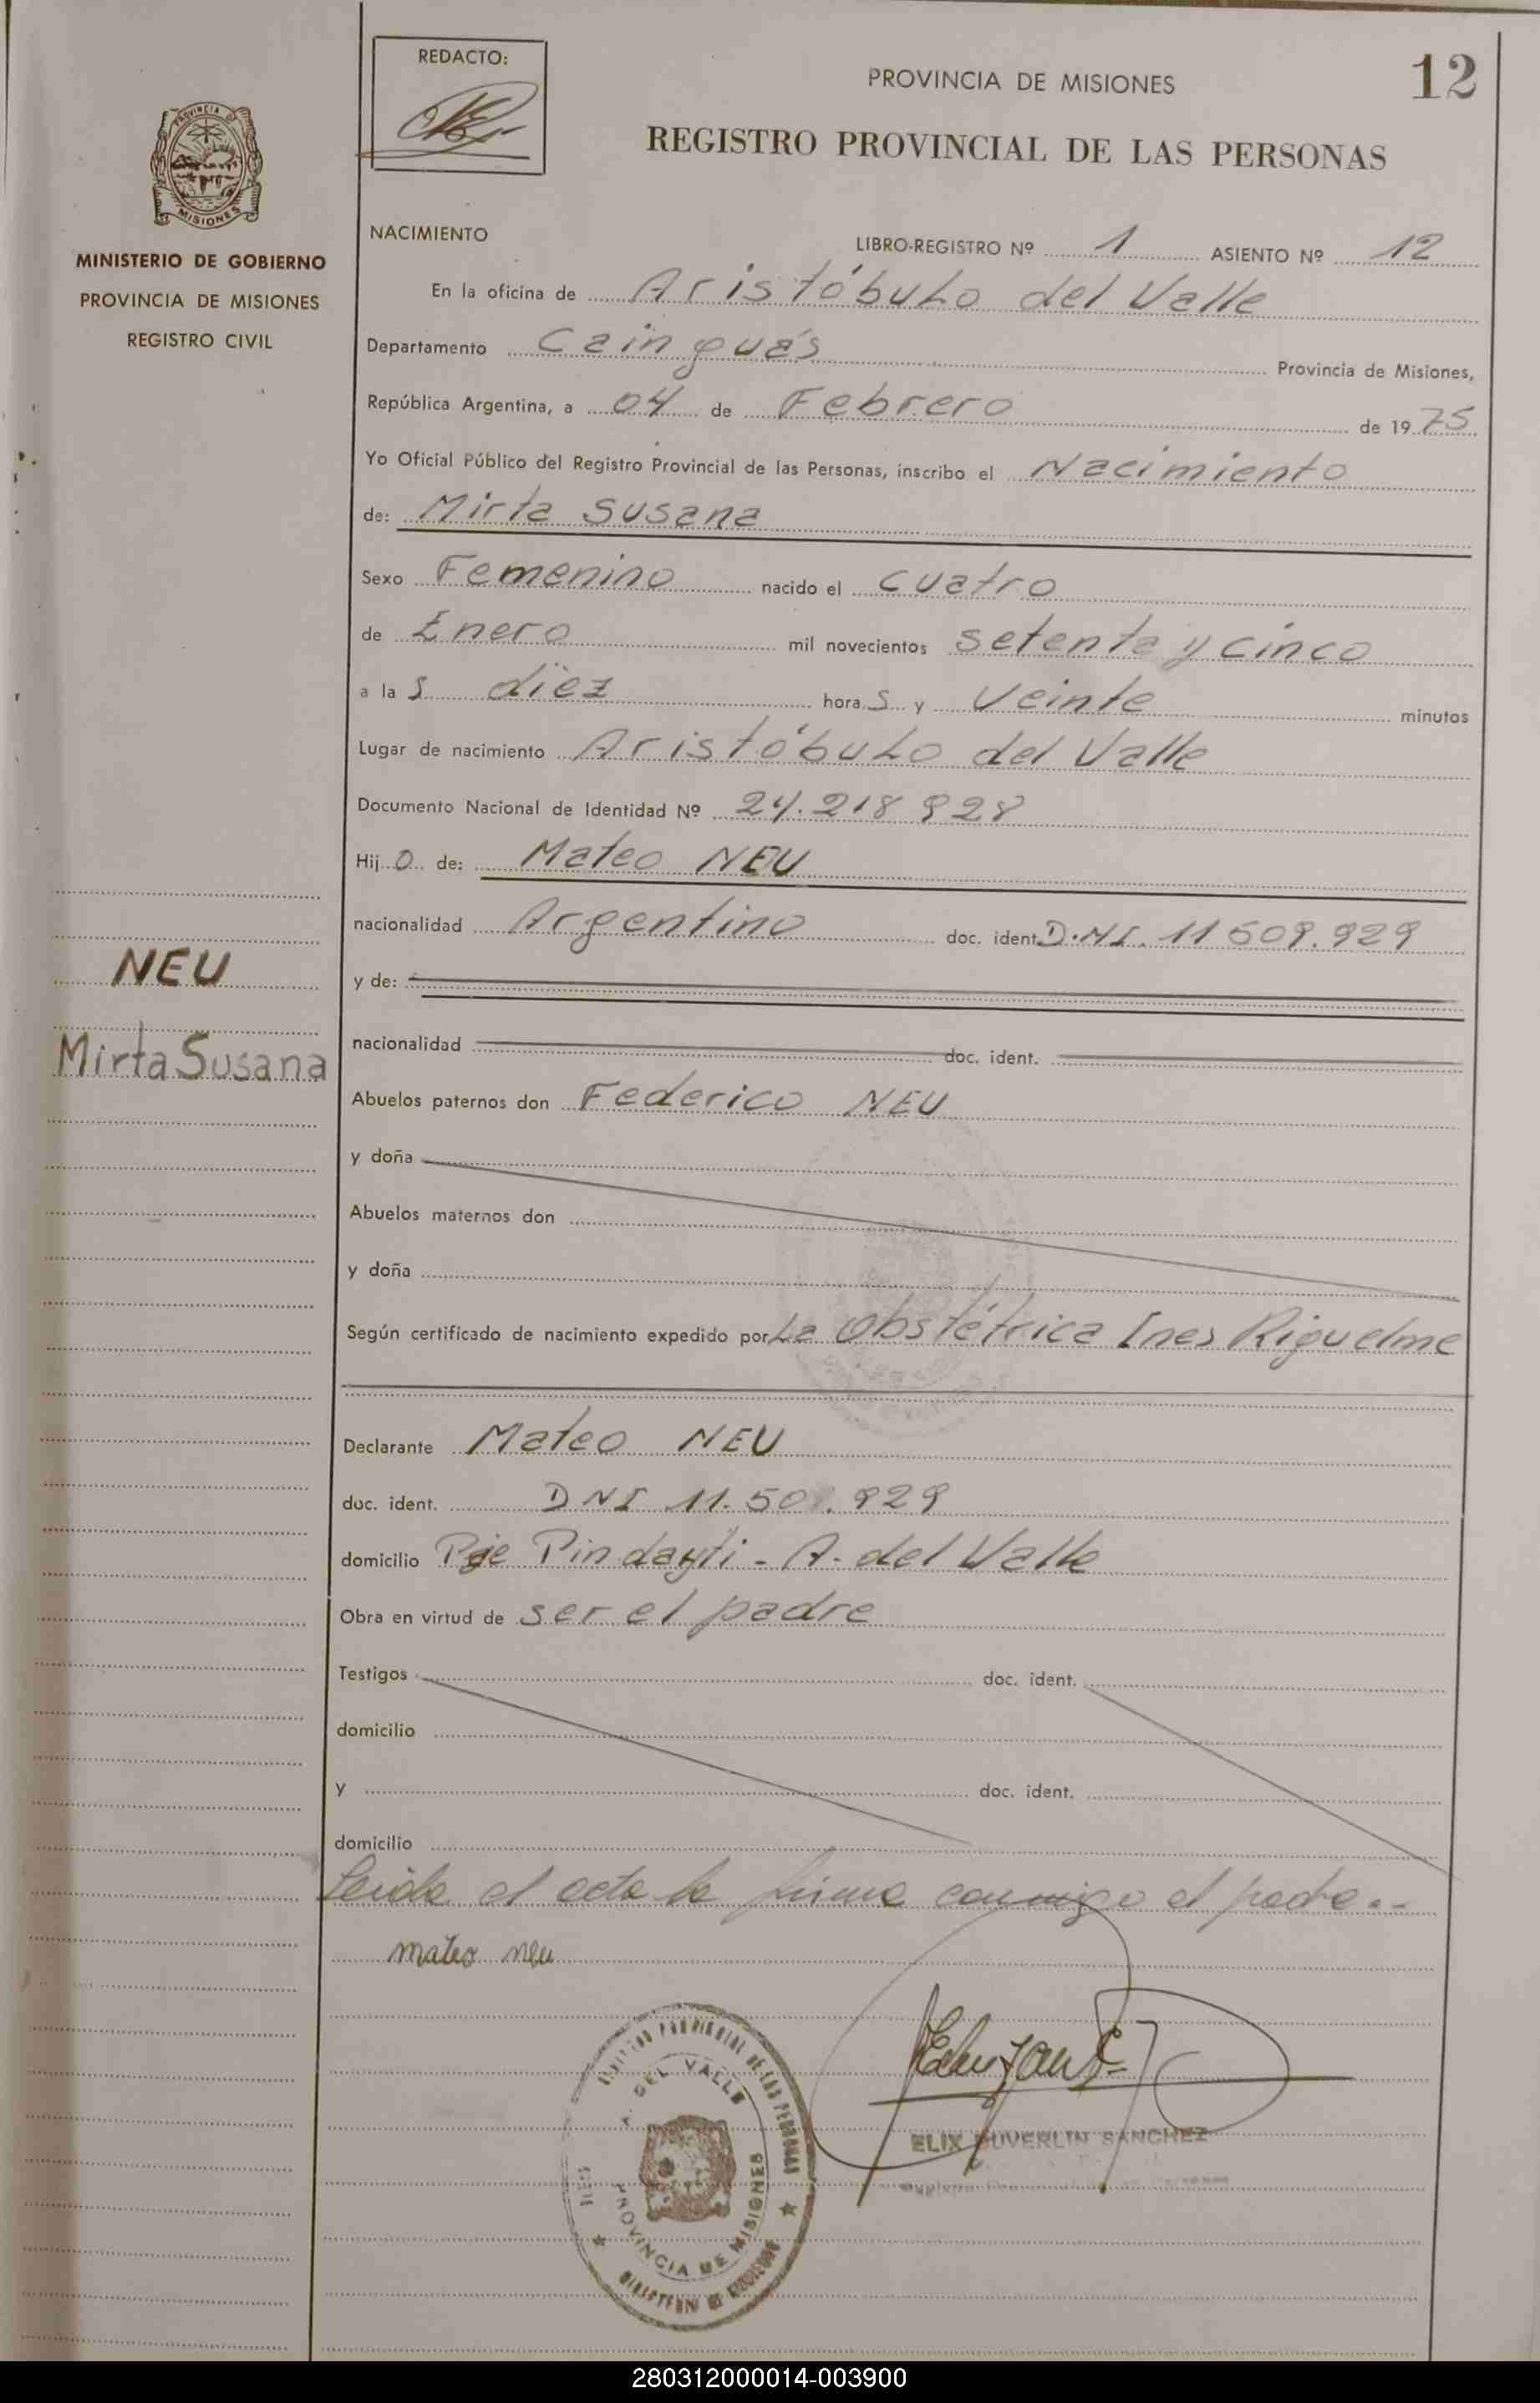 REDACTO:
PROVINCIA DE MISIONES
12
REGISTRO PROVINCIAL DE LAS PERSONAS
PROVINCIA DE
MISIONES
MINISTERIO DE GOBIERNO
PROVINCIA DE MISIONES
REGISTRO CIVIL
NACIMIENTO
LIBRO-REGISTRO Nº 1 ASIENTO Nº 12
En la oficina de Aristóbulo del Valle
Departamento Cainguás Provincia de Misiones,
República Argentina, a 04 de Febrero de 1975
Yo Oficial Público del Registro Provincial de las Personas, inscribo el Nacimiento
de: Mirta Susana
Sexo Femenino nacido el cuatro
de Enero mil novecientos setenta y cinco
a las diez horas y veinte minutos
Lugar de nacimiento Aristóbulo del Valle
Documento Nacional de Identidad Nº 24.218 928
Hijo de: Mateo NEU
nacionalidad Argentino doc. ident. D.N.I. 11 509.929
y de:
nacionalidad doc. ident.
NEU
Mirta Susana
Abuelos paternos don Federico NEU
y doña
Abuelos maternos don
y doña
Según certificado de nacimiento expedido por La Obstétrica Ines Riquelme
Declarante Mateo NEU
doc. ident. DNI 11.509.929
domicilio Pje Pindayti - A. del Valle
Obra en virtud de ser el padre
Testigos doc. ident.
domicilio
y doc. ident.
domicilio
Leida el acta la firma conmigo el padre
mateo neu
REGISTRO PROVINCIAL DE LAS PERSONAS
A. DEL VALLE
PROVINCIA DE MISIONES
ELIX DUVERLIN SANCHEZ
280312000014-003900